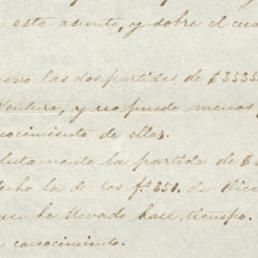 este asunto, y sobre el cua
las dos partidas de $3535
Ventura, y no puedo menos
conocimiento de ellas.
la partida de $
la de los fs. 351. de
he llevado hace tiempo.
conocimiento.